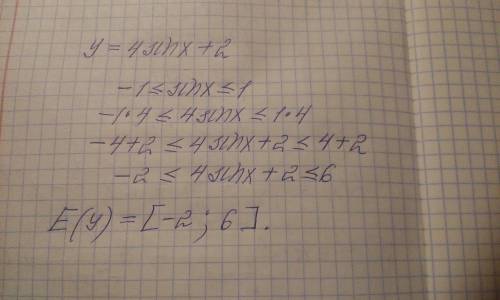 y = 4 sin x + 2
-1 ≤ sin x ≤ 1
-1·4 ≤ 4 sin x ≤ 1·4
-4+2 ≤ 4 sin x + 2 ≤ 4+2
-2 ≤ 4 sin x + 2 ≤ 6
E(y) = [-2; 6].